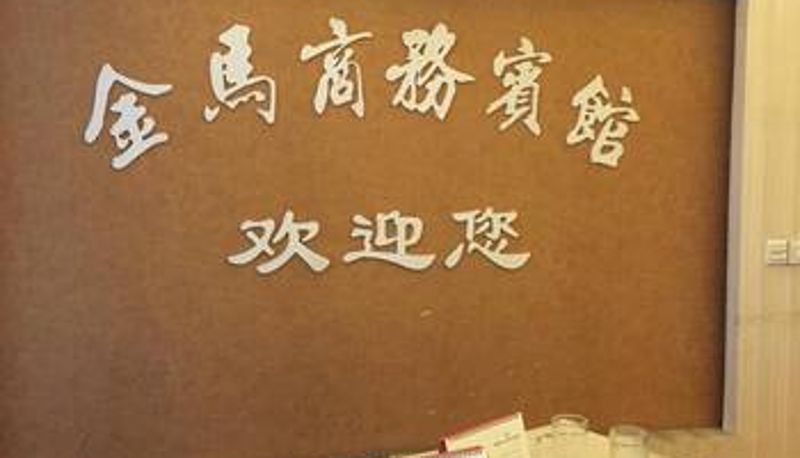 金馬商務賓館
欢迎您